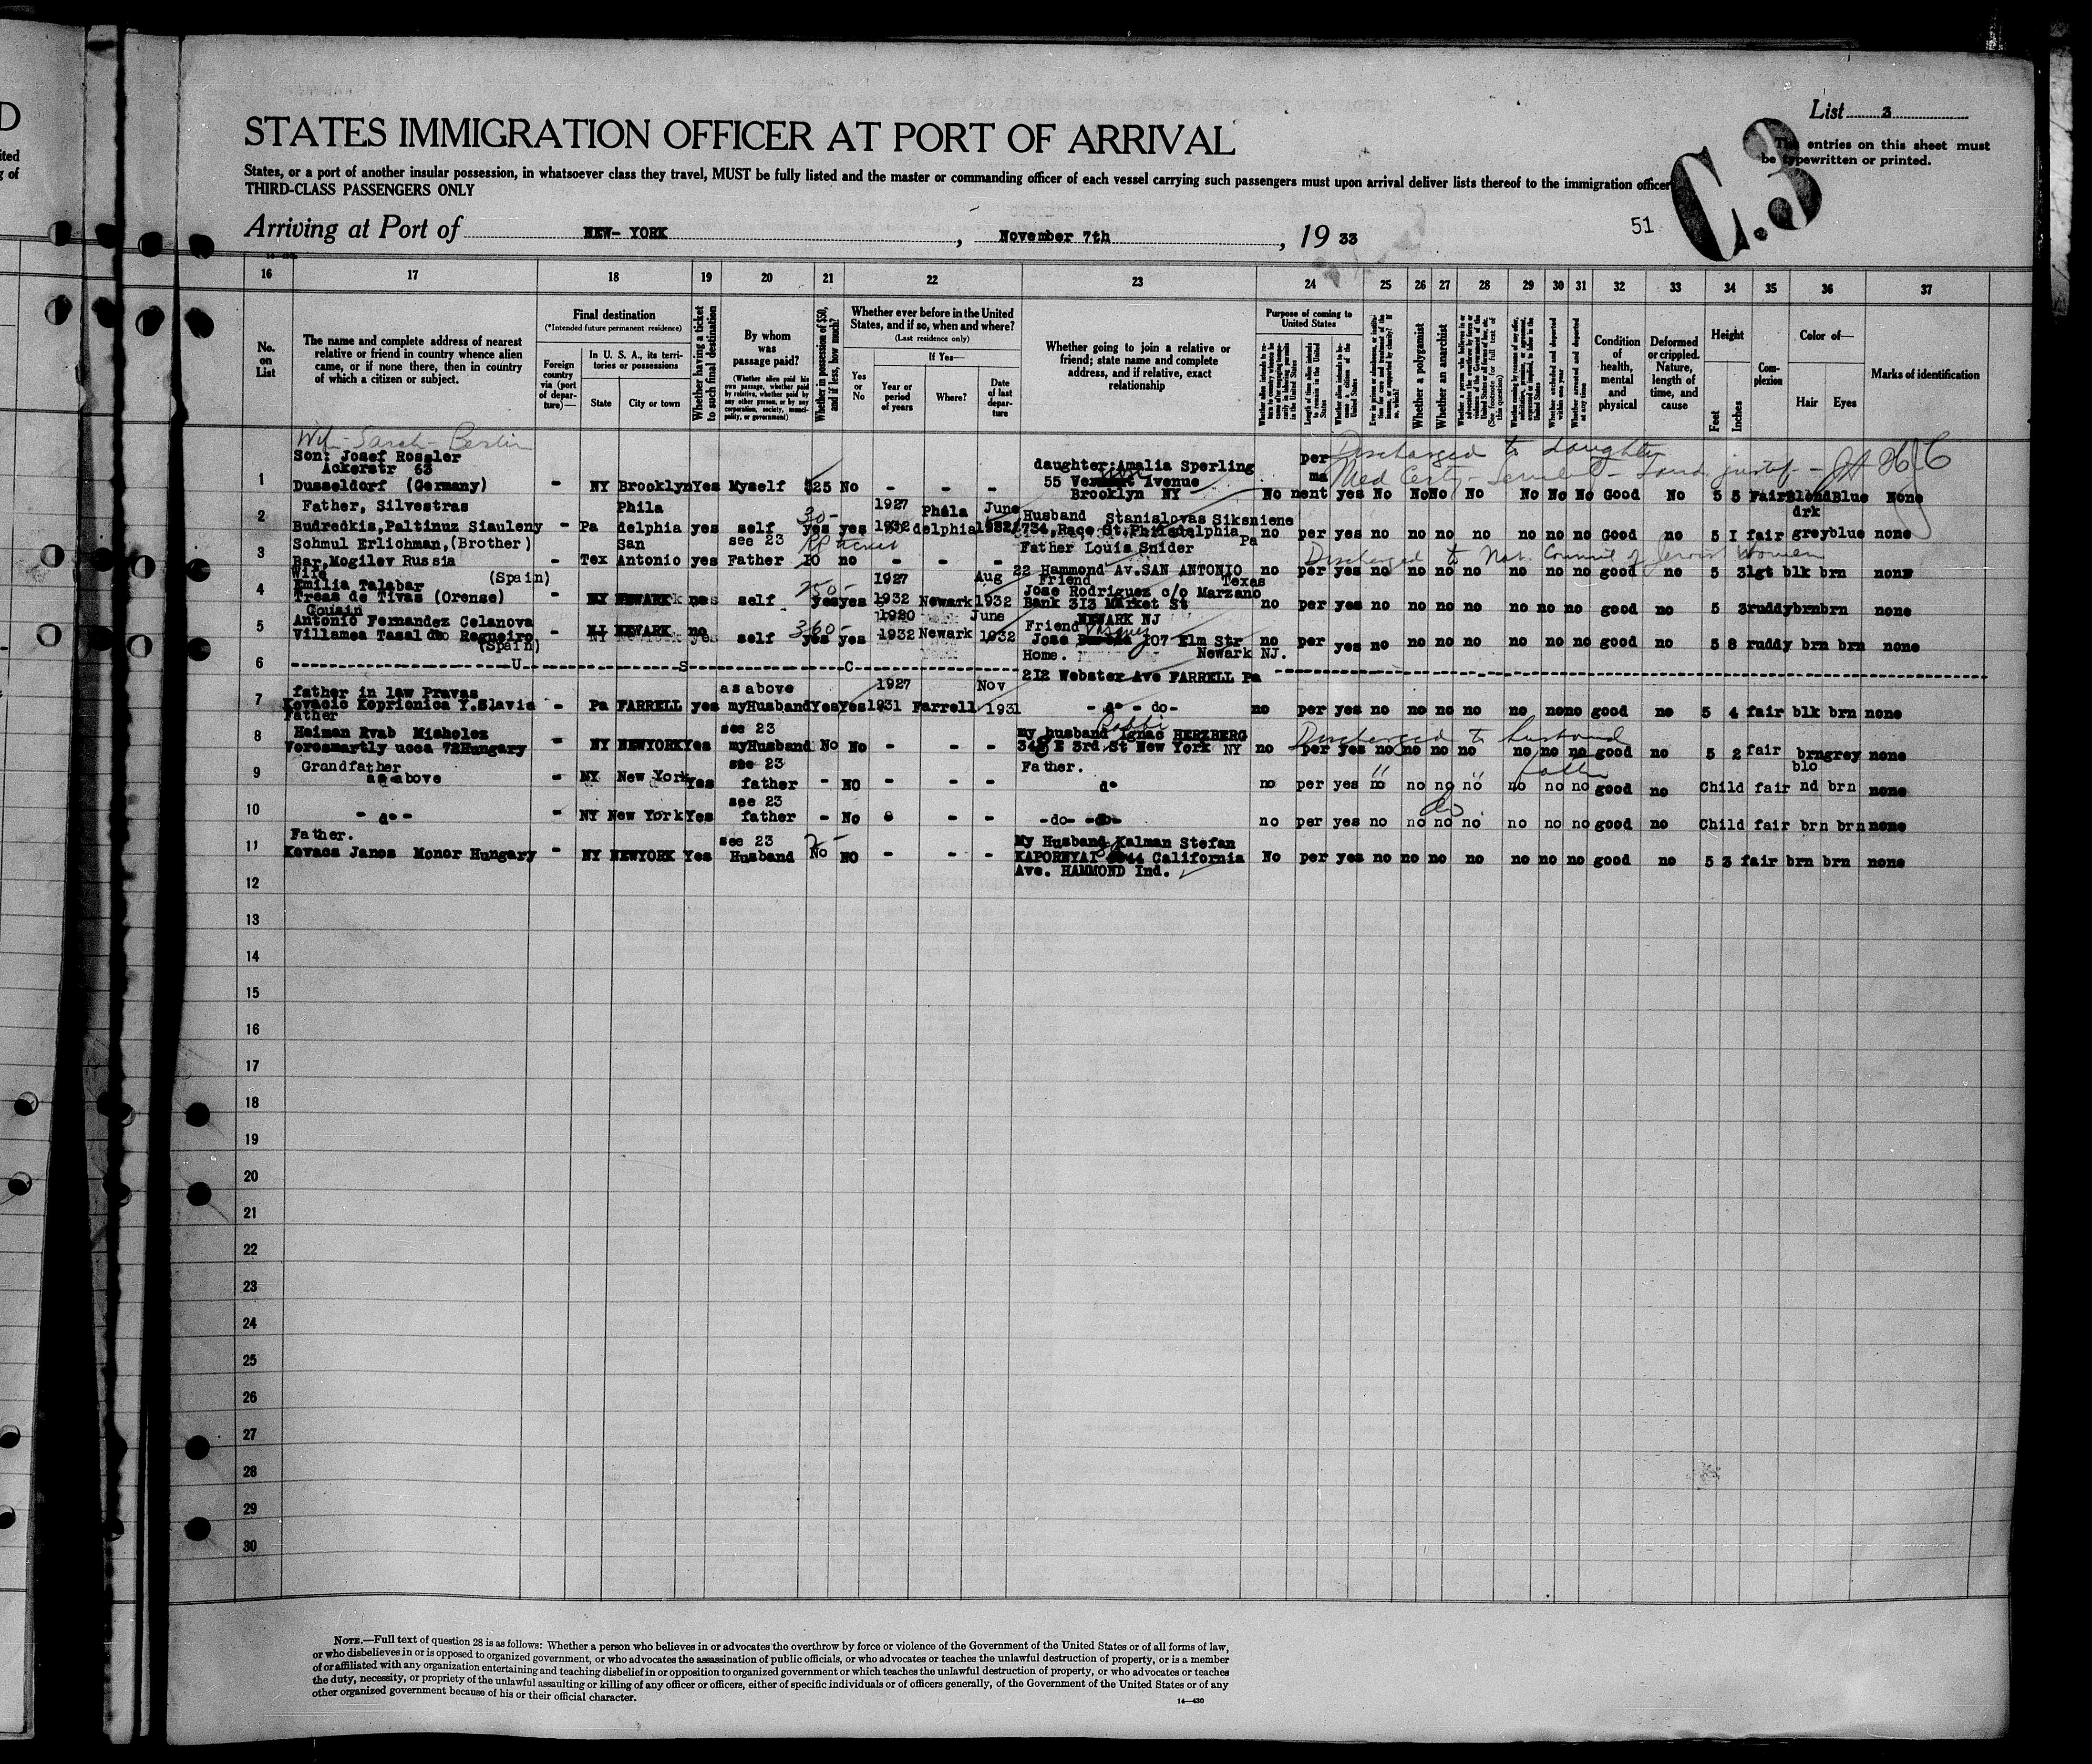 D
ited
g of
List 3
C.3
The entries on this sheet must
be typewritten or printed.
STATES IMMIGRATION OFFICER AT PORT OF ARRIVAL
States, or a port of another insular possession, in whatsoever class they travel, MUST be fully listed and the master or commanding officer of each vessel carrying such passengers must upon arrival deliver lists thereof to the immigration officer
THIRD-CLASS PASSENGERS ONLY
51
Arriving at Port of NEW- YORK , November 7th , 19 33
16 17 18 19 20 21 22 23 24 25 26 27 28 29 30 31 32 33 34 35 36 37
No. on List
The name and complete address of nearest relative or friend in country whence alien came, or if none there, then in country of which a citizen or subject.
Final destination
(*Intended future permanent residence)
Foreign country via (port of departure)—
In U. S. A., its territories or possessions
State City or town
Whether having a ticket to such final destination
By whom was passage paid?
(Whether alien paid his own passage, whether paid by relative, whether paid by any other person, or by any corporation, society, municipality, or government)
Whether in possession of $50, and if less, how much?
Whether ever before in the United States, and if so, when and where?
(Last residence only)
Yes or No
If Yes—
Year or period of years
Where?
Date of last departure
Whether going to join a relative or friend; state name and complete address, and if relative, exact relationship
Purpose of coming to United States
Length of time alien intends to remain in the United States
Whether alien intends to become a citizen of the United States
Whether a polygamist
Whether an anarchist
Whether excluded and deported within one year
Whether arrested and deported at any time
Condition of health, mental and physical
Deformed or crippled. Nature, length of time, and cause
Height
Feet Inches
Complexion
Color of—
Hair Eyes
Marks of identification
Sarah - Berlin
Discharged to daughter
Son: Josef Rossler
Ackerstr 63
daughter:Amalia Sperling per
55 Avenue ma
1 Dusseldorf (Germany) - NY Brooklyn Yes Myself $25 No - - - Brooklyn NY No nent yes No No No No No No No Good No 5 5 Fair Blond Blue None
Father, Silvestras Phila 30- 1927 Phila June Husband Stanislovas Siksniene drk
2 Budredkis,Paltinuz Siauleny - Pa delphia yes self yes yes 1932 delphia 1932 1734,Race St.Philadelphia Pa no per yes no no no no no no no Good no 5 I fair grey blue none
Schmul Erlichman,(Brother) San see 23 Father Louis Snider Discharged to Nat. Council of Jewish Women
3 Bar,Mogilev Russia - Tex Antonio yes Father 10 no - - - 22 Hammond Av.SAN ANTONIO Texas no per yes no no no no no no no good no 5 3 lgt blk brn none
Wife (Spain) 250- 1927 Aug Friend
4 Emilia Talabar Jose Rodriguez c/o Marzano
Treas de Tivas (Orense) - NY NEWARK self yes yes 1932 Newark 1932 Bank 313 Market St no per yes no no no no no no no good no 5 3 ruddy brn brn none
Cousin 1920 June NEWARK NJ
5 Antonio Fernandez Celanova - NJ NEWARK no 360- Friend
Villamea Tasal do Regueiro (Spain) self yes yes 1932 Newark 1932 Jose Vasquez 107 Elm Str no per yes no no no no no no no good no 5 8 ruddy brn brn none
Home. Newark NJ.
6 ---------- U ---------- S ---------- C ----------
212 Webster Ave FARRELL Pa
father in law Pravas as above 1927 Nov
7 Kovacic Koprionica Y.Slavia - Pa FARRELL yes my Husband Yes Yes 1931 Farrell 1931 - do - do- no per yes no no no no no no no good no 5 4 fair blk brn none
Father see 23 Rabbi Discharged to husband
8 Heiman Rvab Misholez my husband Ignac HERZBERG
Vorosmartly ucca 72 Hungary - NY NEWYORK Yes my Husband No No - - - 345 E 3rd St New York NY no per yes no no no no no no no good no 5 2 fair brn grey none
Grandfather see 23 Father. " " father blo
9 as above - NY New York Yes father - NO - - - do no per yes no no no no no no no good no Child fair nd brn none
see 23 do
10 - do - - NY New York Yes father - No - - - -do- no per yes no no no no no no no good no Child fair brn brn none
Father. see 23 2- My Husband Kalman Stefan
11 Kovacs Janos Monor Hungary - NY NEWYORK Yes Husband No NO - - - KAPORNYAI California No per yes no no no no no no no good no 5 3 fair brn brn none
Ave. HAMMOND Ind.
12
13
14
15
16
17
18
19
20
21
22
23
24
25
26
27
28
29
30
NOTE.—Full text of question 28 is as follows: Whether a person who believes in or advocates the overthrow by force or violence of the Government of the United States or of all forms of law,
or who disbelieves in or is opposed to organized government, or who advocates the assassination of public officials, or who advocates or teaches the unlawful destruction of property, or is a member
of or affiliated with any organization entertaining and teaching disbelief in or opposition to organized government or which teaches the unlawful destruction of property, or who advocates or teaches
the duty, necessity, or propriety of the unlawful assaulting or killing of any officer or officers, either of specific individuals or of officers generally, of the Government of the United States or of any
other organized government because of his or their official character.
14—430